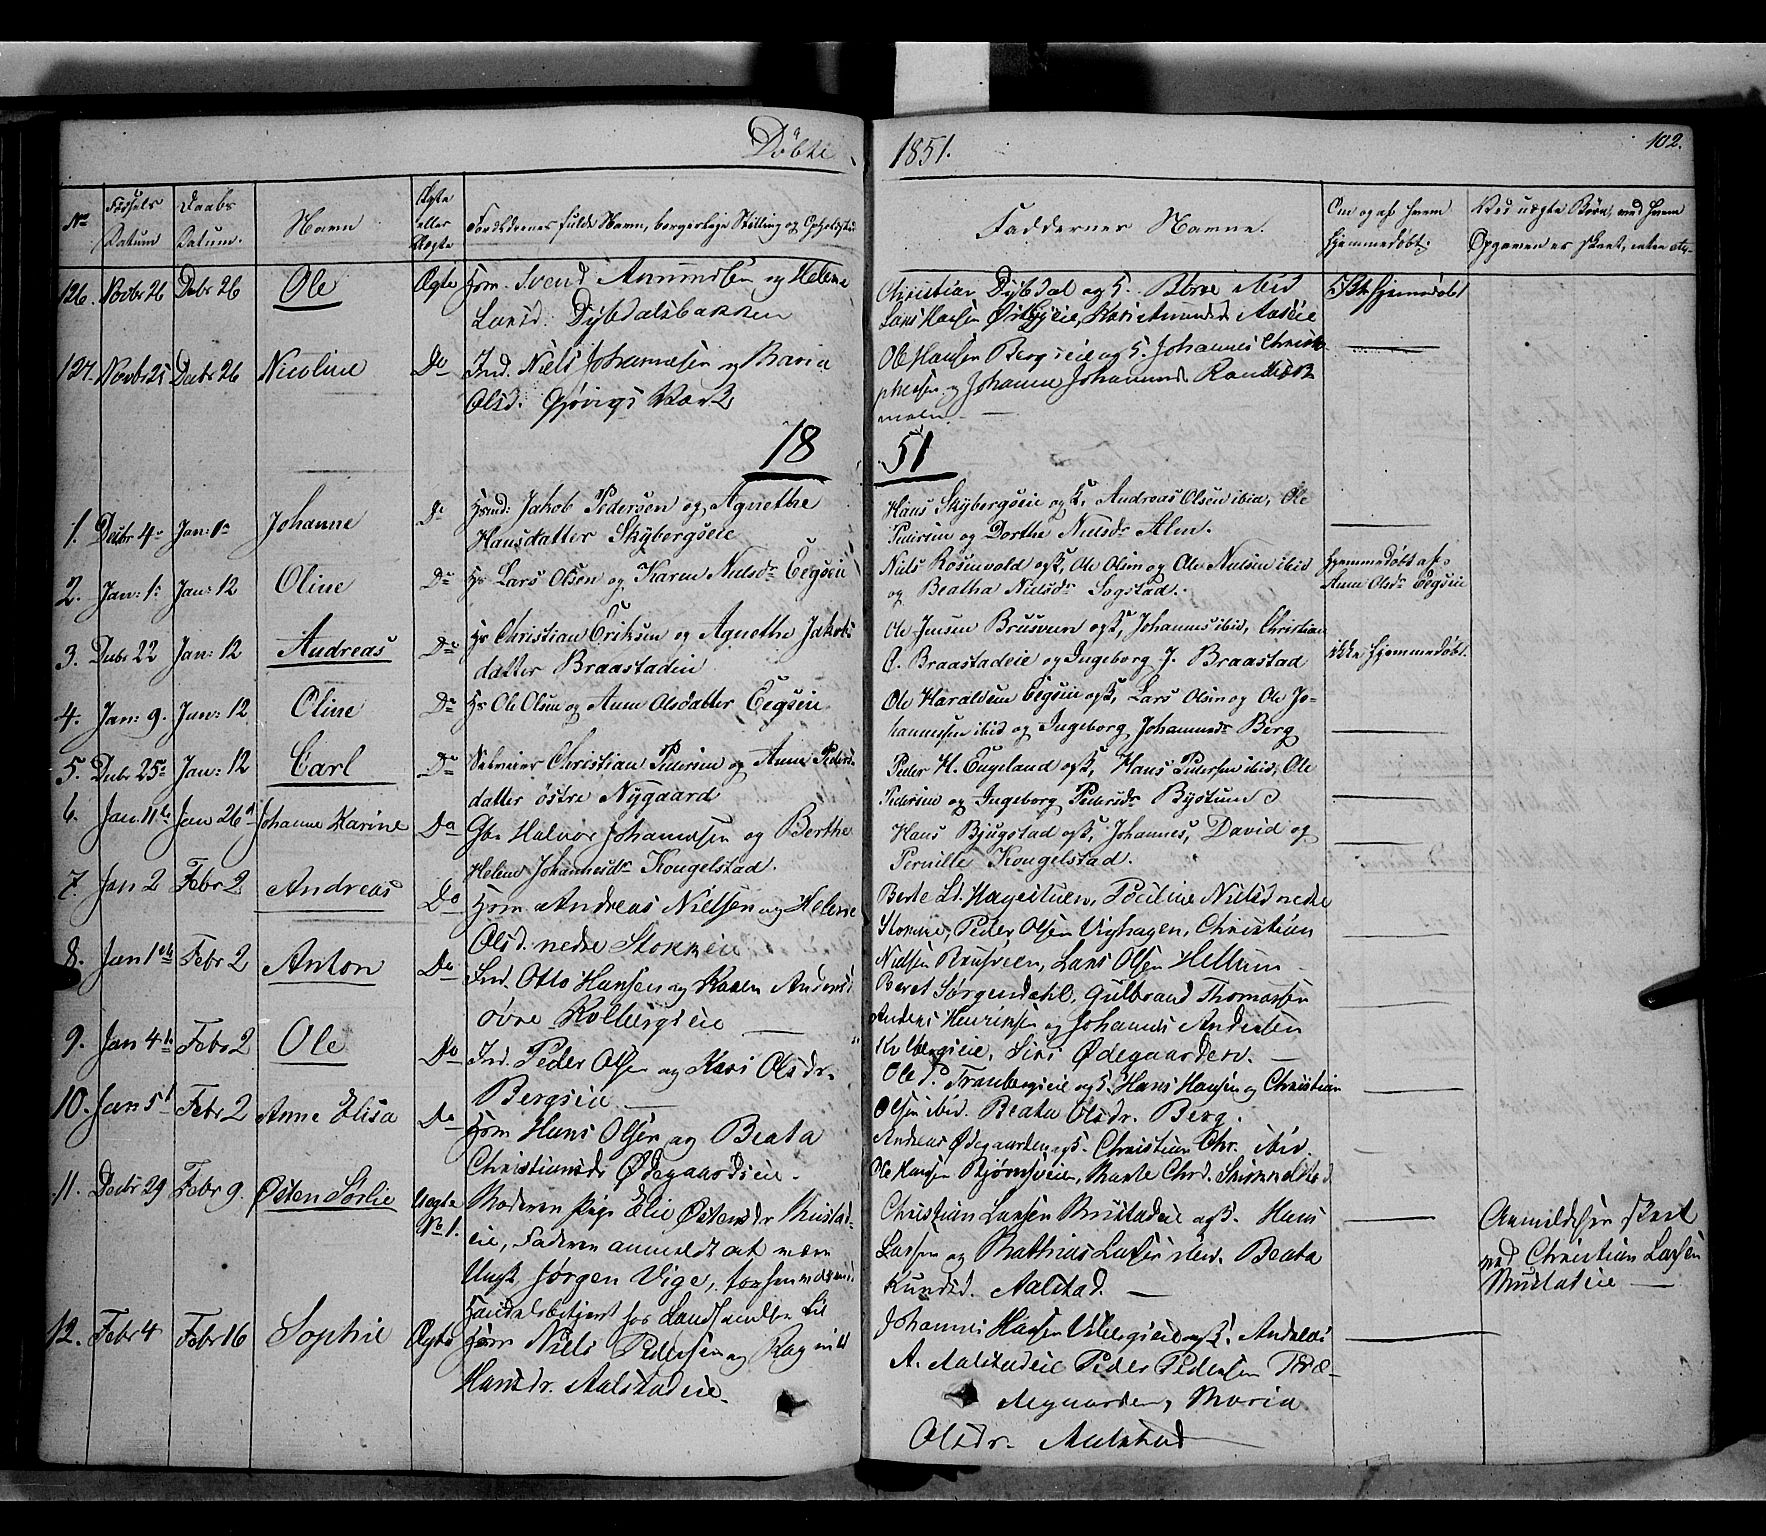 Döbte 1851. 102.
No Födsels Datum Daabs Datum. Navn Ægte eller Uægte Forældrenes fulde Navn, borgerlige Stilling og Opholdsted Faddernes Navne. Om og af hvem hjemmedøbt. Ved uægte Børn, med hvem Opgaven er skeet
126. Novbr 26 Debr 26 Ole Ægte Hsm. Svend Amundsen og Helene
Larsd. Dybdalsbakken
Christian Dybdal og H. Børre ibid
Lars Hansen Østbyeie, Kari Amundsd. Aaseie
Ikke hjemmedøbt
127. Novbr 25 Decbr 26 Nicoline Do Ind. Niels Johannesen og Maria
Olsd. Gjøvigs Værk
Ole Hansen Bergseie og H. Johannes Christo-
phersen og Johanne Johannesd.
18 51
1. Decbr 4de Jan: 1ste Johanne Do Hsmd: Jakob Pedersen og Agnethe
Hansdatter Skybergseie
Hans Skybergseie og K, Andreas Olsen ibid, Ole
Pedersen og Dorthe Nielsdr Alm.
2. Jan: 1ste Jan: 12 Oline Do Hs Lars Olsen og Karen Nielsdr Eegseie
Niels Rosenvold og K, Ole Olsen og Ole Nielsen ibid
og Beatha Nielsdr Sogstad.
Hjemmedøbt af
Anne Olsdr Eegseie
3. Decbr 22 Jan: 12 Andreas Do Hs Christian Eriksen og Agnethe Jakobs
datter Braastadeie
Ole Jensen Brusveen og K, Johannes ibid, Christian
O. Braastadeie og Ingeborg J. Braastad
ikke hjemmedøbt.
4. Jan: 9. Jan: 12 Oline Do Hs Ole Olsen og Anne Olsdatter Eegseie
Ole Haraldsen Eegseie og K, Lars Olsen og Ole Jo-
hannesen ibid og Ingeborg Johannesdr Berg
5. Decbr 25de Jan: 12 Carl Do Selveier Christian Pedersen og Anne Peders-
datter østre Nygaard
Peder H. Engeland og K, Hans Pedersen ibid, Ole
Pedersen og Ingeborg Pedersdr Bystuen
6. Jan. 11te Jan 26d Johanne Karine Do Gbr Halvor Johannesen og Berthe
Helene Johannesdr Kongelstad.
Hans Bjugstad og K, Johannes, David og
Pernille Kongelstad.
7. Jan 2 Febr 2 Andreas Do Hsm Andreas Nielsen og Helene
Olsd. nedre Stokkeeie
Berte Ld. Hagestuen, Pauline Nielsd nedre
Stokke, Peder Olsen Vighagen, Christian
Nielsen Brusveen, Lars Olsen Hellum
8. Jan 1ste Febr 2 Anton Do Ind. Otto Hansen og Karen Andersd
øvre Kolbergseie
Beret Sørgendahl, Gulbrand Thomassen
Anders Henriksen og Johannes Andersen
Kolbergseie, Siri Ødegaarden.
9. Jan 4de Febr 2 Ole Do Ind. Peder Olsen og Kari Olsdr.
Bergseie
Ole P. Tranbergseie og H. Hans Hansen og Christian
Olsen ibid. Beata Olsdr. Berg.
10. Jan 5t Febr 2 Anne Elisa Do Hsm Hans Olsen og Beata
Christiansdr Ødegaardseie.
Andreas Ødegaarden og H. Christian Chr. ibid.
Ole Hansen Bjørnsveien, Marte Chrd.
11. Decbr 29 Febr 9. Østen Sørlie Uægte No 1. Moderen Pige Elie Østensdr Mustad-
eie, Faderen anmeldt at være
Ungk. Jørgen Vige,
Handelsbetjent hos Landhandler
Christian Larsen Mustadeie og H. Hans
Larsen og Mathias Larsen ibid. Beata
Knudsd. Aalstad.
Anmeldelsen skeet
ved Christian Larsen
Mustadeie
12. Febr 4 Febr 16 Sophie Ægte Hsm Niels Pedersen og Ragnild
Hansdr. Aalstadeie.
Johannes Hansen Vibergseie og K. Andreas
A. Aalstadeie Peder Pedersen Træ-
degaarden, Maria
Olsdr. Aalstad